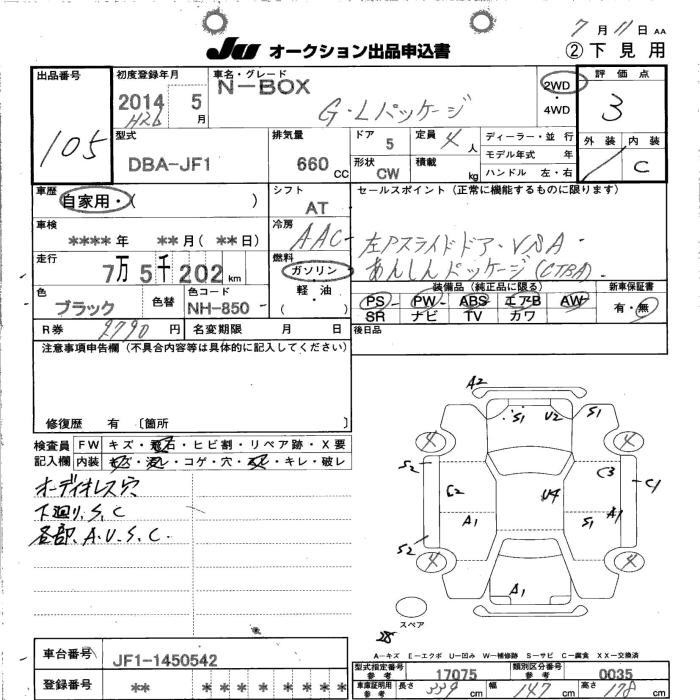 7月11日 AA
JU オークション出品申込書 ②下見用
出品番号 105
初度登録年月 2014 H26 5月
車名・グレード N-BOX G・Lパッケージ
2WD・4WD
評価点 3
外装 内装 C
型式 DBA-JF1
排気量 660 CC
ドア 5
形状 CW
定員 4人
積載 kg
ディーラー・並行
モデル年式 年
ハンドル 左・右
車歴 自家用・( )
シフト AT
セールスポイント(正常に機能するものに限ります)
左Pスライドドア・VSA・
あんしんパッケージ(CTBA)
車検 ****年 **月(**日)
冷房 AAC
走行 7万5千202km
燃料 ガソリン・軽油・( )
色 ブラック
色替
色コード NH-850
装備品(純正品に限る)
PS PW ABS エアB AW
SR ナビ TV カワ
新車保証書 有・無
R券 8790円
名変期限 月 日
後日品
注意事項申告欄(不具合内容等は具体的に記入してください)
修復歴 有〔箇所 〕
検査員記入欄
FW キズ・飛石・ヒビ割・リペア跡・X要
内装 キズ・汚レ・コゲ・穴・スレ・キレ・破レ
オーディオレス穴
下廻り、S、C
各部、A、U、S、C
A2
S1 U2 S1
4 4
S2 C3
G2 U4 C1
A1 S1 A1
S2
4 4
A1
スペア
A-キズ E-エクボ U-凹み W-補修跡 S-サビ C-腐食 XX-交換済
車台番号 JF1-1450542
登録番号 ** *****
型式指定番号 参考 17075
類別区分番号 参考 0035
車庫証明用 参考 長さ 339cm 幅 147cm 高さ 178cm